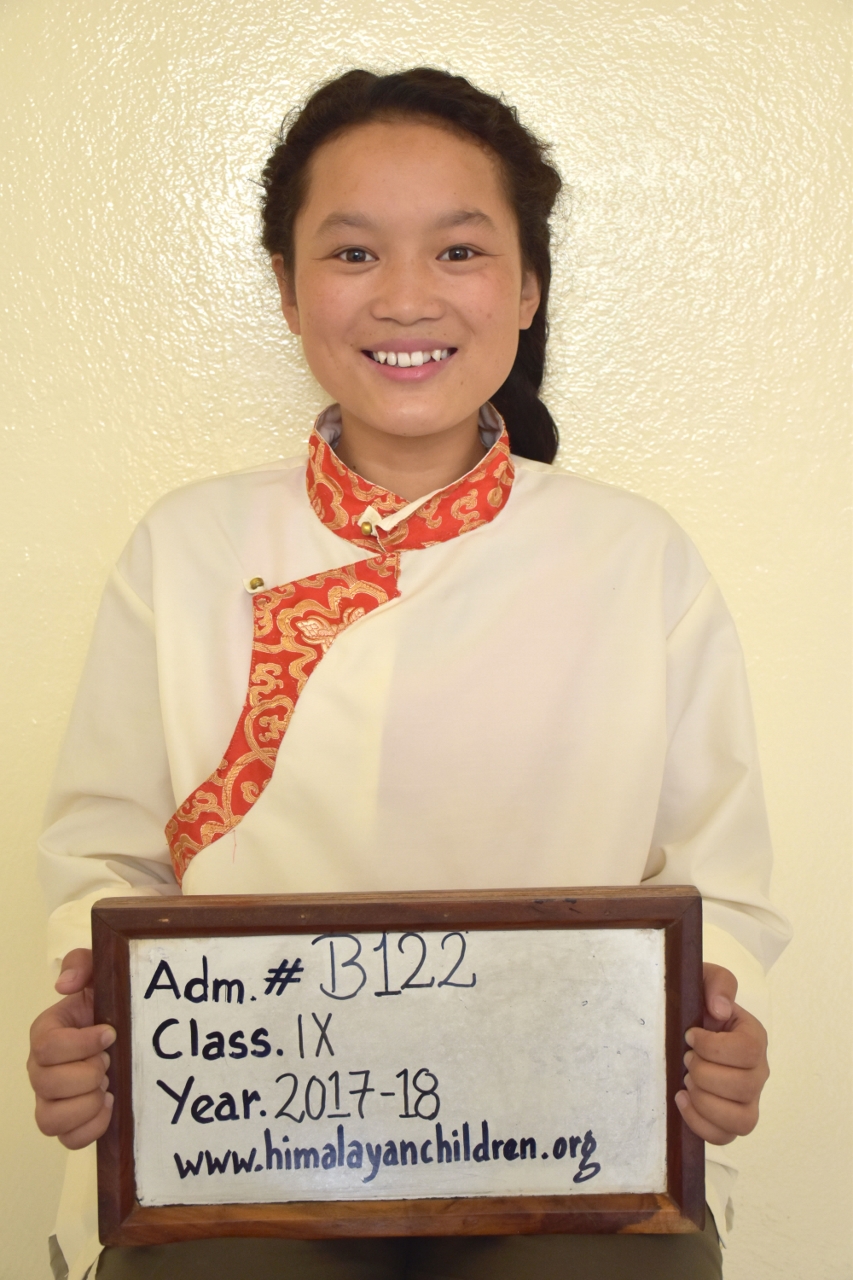 Adm. # B122
Class. IX
Year. 2017-18
www.himalayanchildren.org